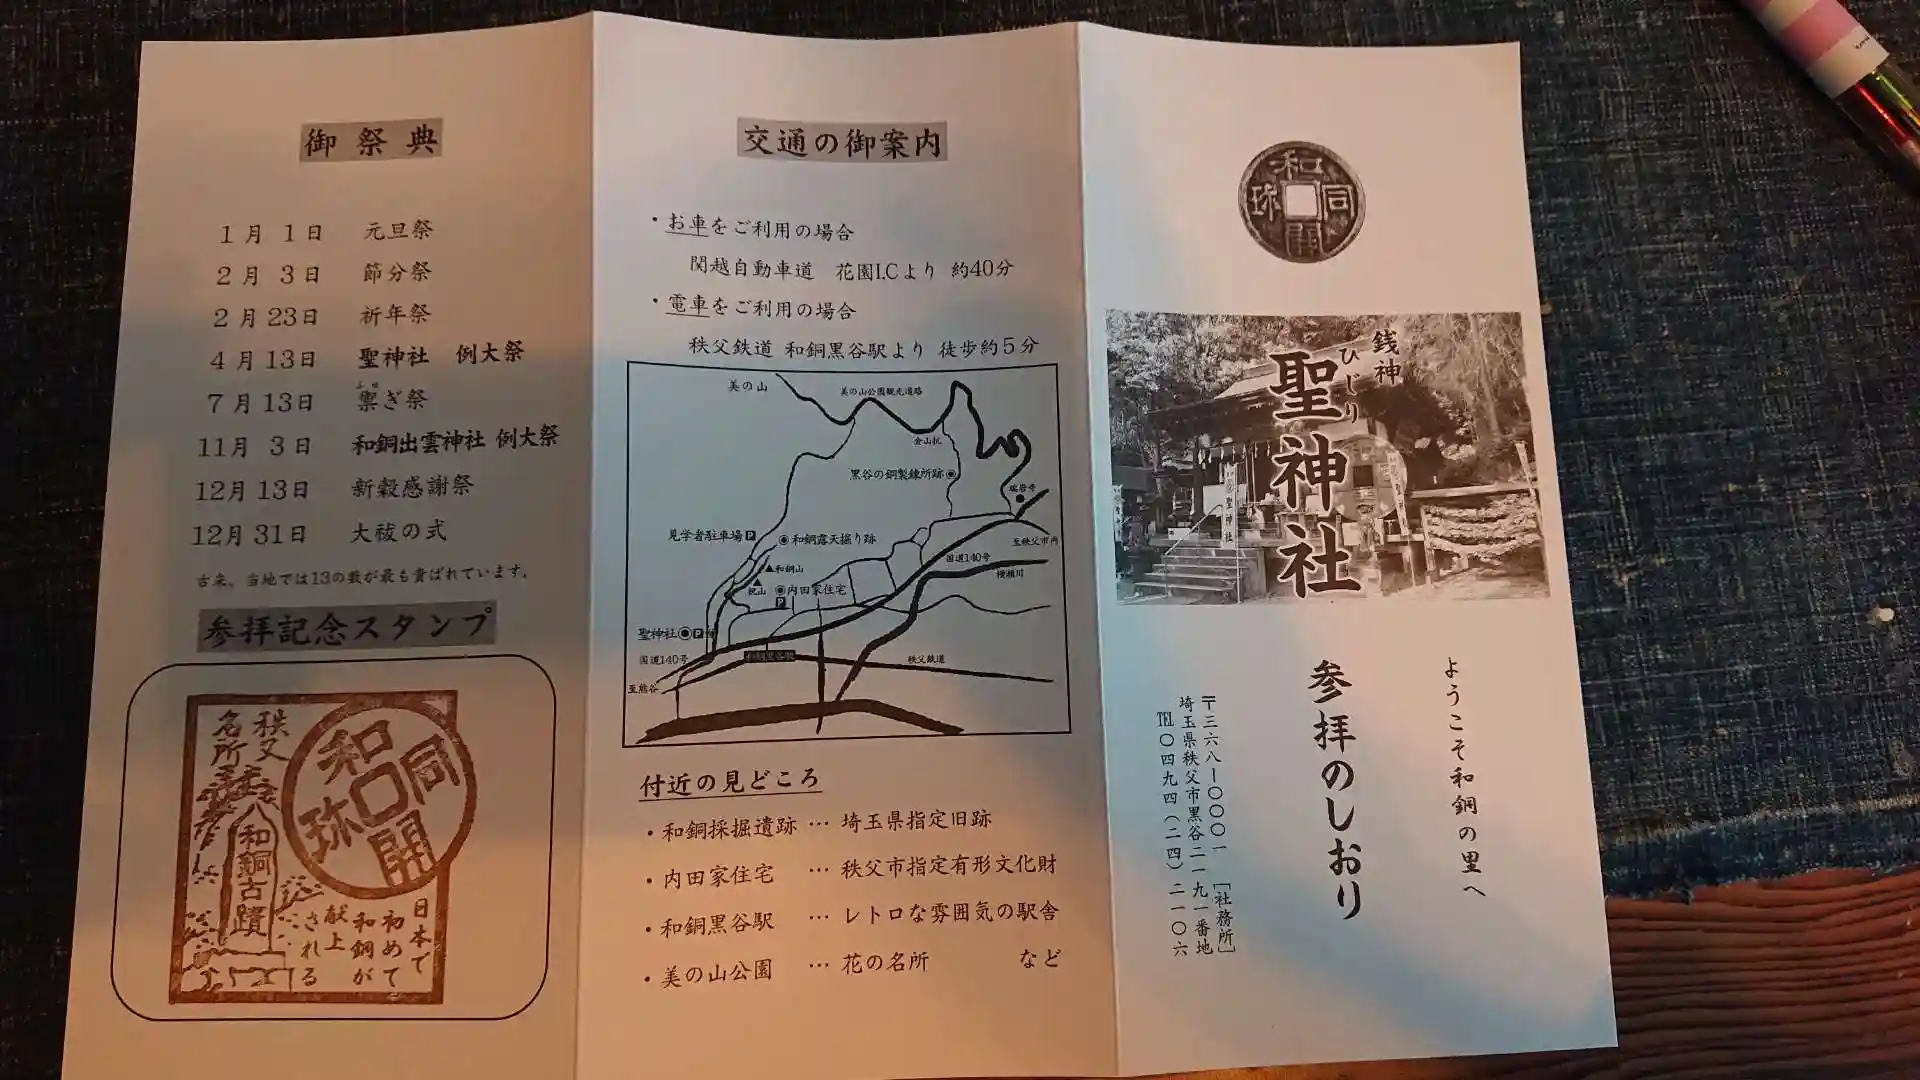 和同開珎
銭神
ひじり
聖神社
ようこそ和銅の里へ
参拝のしおり
〒三六八ー〇〇〇一
[社務所]
埼玉県秩父市黒谷二一九一番地
TEL〇四九四(二四)二一〇六
交通の御案内
・お車をご利用の場合
関越自動車道 花園I.Cより 約40分
・電車をご利用の場合
秩父鉄道 和銅黒谷駅より 徒歩約5分
美の山
美の山公園観光道路
金山坑
黒谷の銅製錬所跡
瑞岩寺
見学者駐車場P
和銅露天掘り跡
至秩父市内
国道140号
横瀬川
▲和銅山
祝山
内田家住宅
P
聖神社
P
国道140号
和銅黒谷駅
秩父鉄道
至熊谷
付近の見どころ
・和銅採掘遺跡 … 埼玉県指定旧跡
・内田家住宅 … 秩父市指定有形文化財
・和銅黒谷駅 … レトロな雰囲気の駅舎
・美の山公園 … 花の名所 など
御祭典
1月 1日 元旦祭
2月 3日 節分祭
2月23日 祈年祭
4月13日 聖神社 例大祭
7月13日 禦ぎ祭
11月 3日 和銅出雲神社 例大祭
12月13日 新穀感謝祭
12月31日 大祓の式
古来、当地では13の数が最も貴ばれています。
参拝記念スタンプ
秩父
名所
和同開珎
和銅古蹟
日本で
初めて
和銅が
献上
される